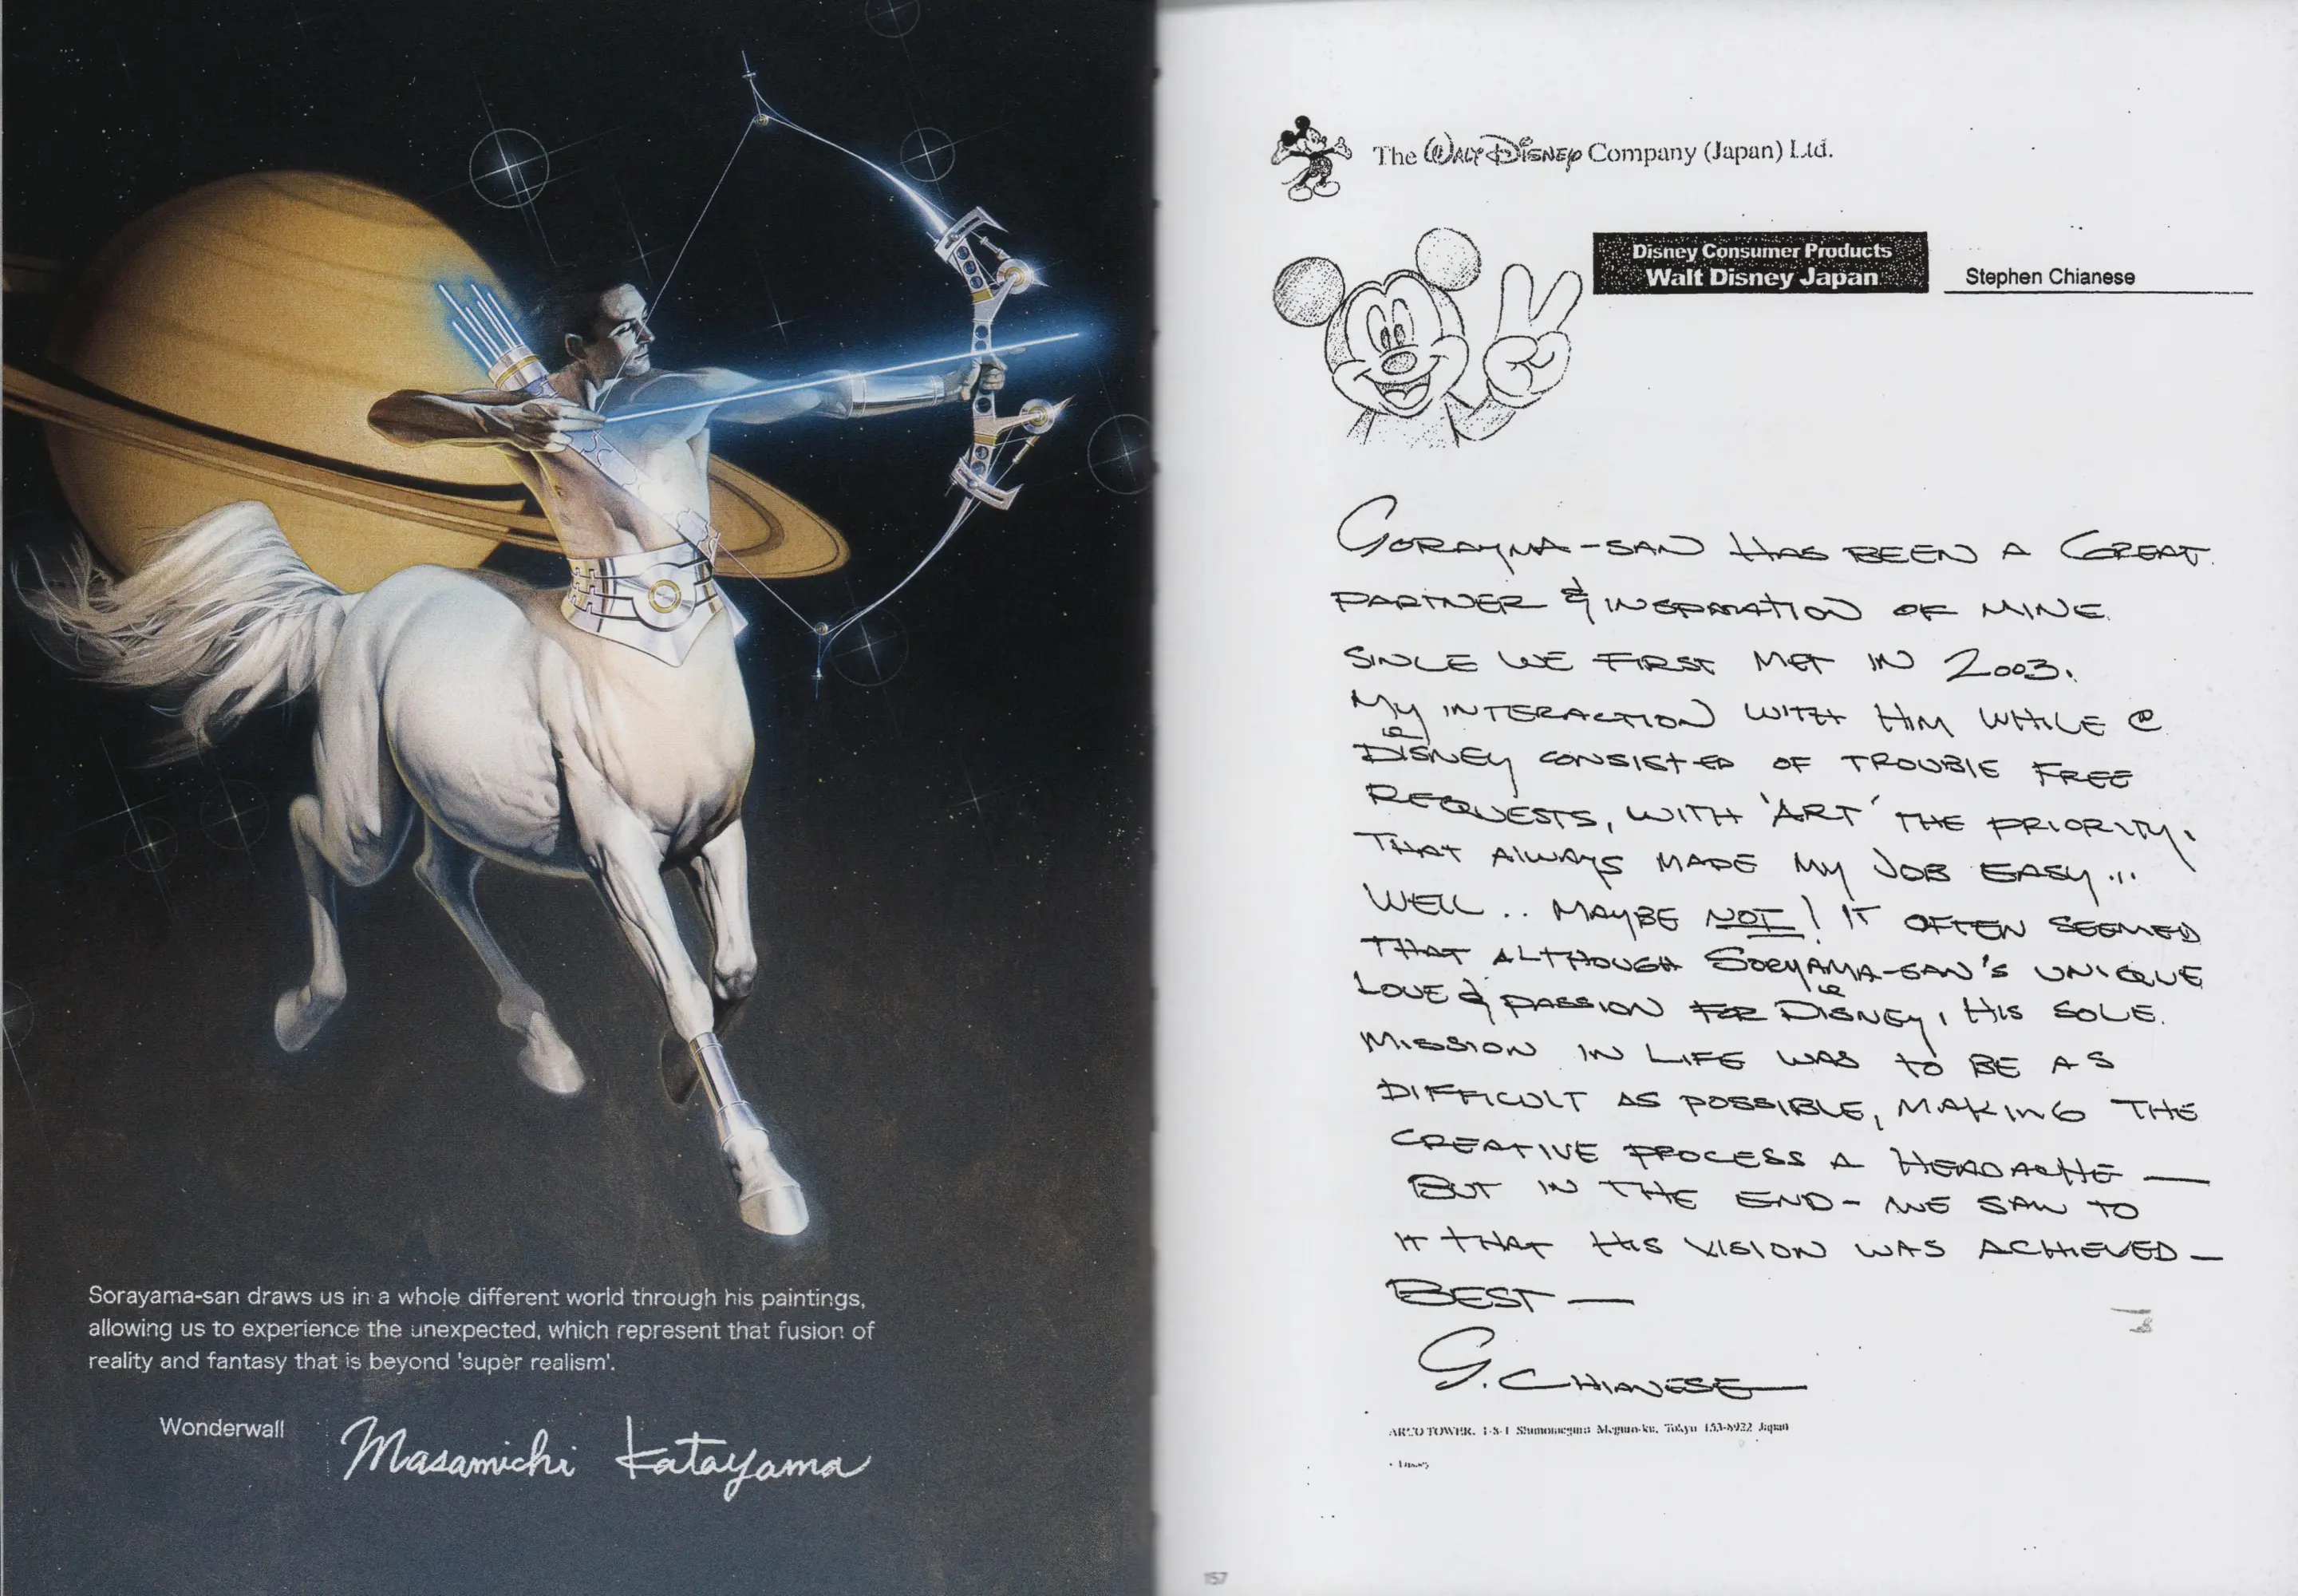 Sorayama-san draws us in a whole different world through his paintings,
allowing us to experience the unexpected, which represent that fusion of
reality and fantasy that is beyond 'super realism'.
Wonderwall
Masamichi Katayama
The WALT DISNEY Company (Japan) Ltd.
Disney Consumer Products
Walt Disney Japan
Stephen Chianese
SORAYMA-SAN HAS BEEN A GREAT
PARTNER & INSPIRATION OF MINE
SINCE WE FIRST MET IN 2003.
MY INTERACTION WITH HIM WHILE @
DISNEY CONSISTED OF TROUBLE FREE
REQUESTS, WITH 'ART' THE PRIORITY.
THAT ALWAYS MADE MY JOB EASY...
WELL.. MAYBE NOT! IT OFTEN SEEMED
THAT ALTHOUGH SORYAMA-SAN'S UNIQUE
LOVE & PASSION FOR DISNEY, HIS SOLE
MISSION IN LIFE WAS TO BE AS
DIFFICULT AS POSSIBLE, MAKING THE
CREATIVE PROCESS A HEADACHE —
BUT IN THE END - WE SAW TO
IT THAT HIS VISION WAS ACHIEVED —
BEST —
S. CHIANESE
ARCO TOWER, 1-8-1 Shimomeguro Meguro-ku, Tokyo 153-8922 Japan
157